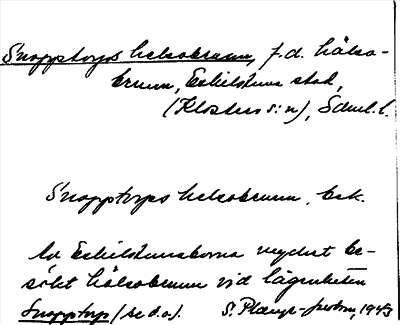 Snopptorps helsobrunn, f.d. hälso-
brunn, Eskilstuna stad,
(Klosters s:n), Söml. l.
Snopptorps helsobrunn, bek.
Av Eskilstunaborna mycket be-
sökt hälsobrunn vid lägenheten
Snopptorp (se d.o.). S. Plange- 1943